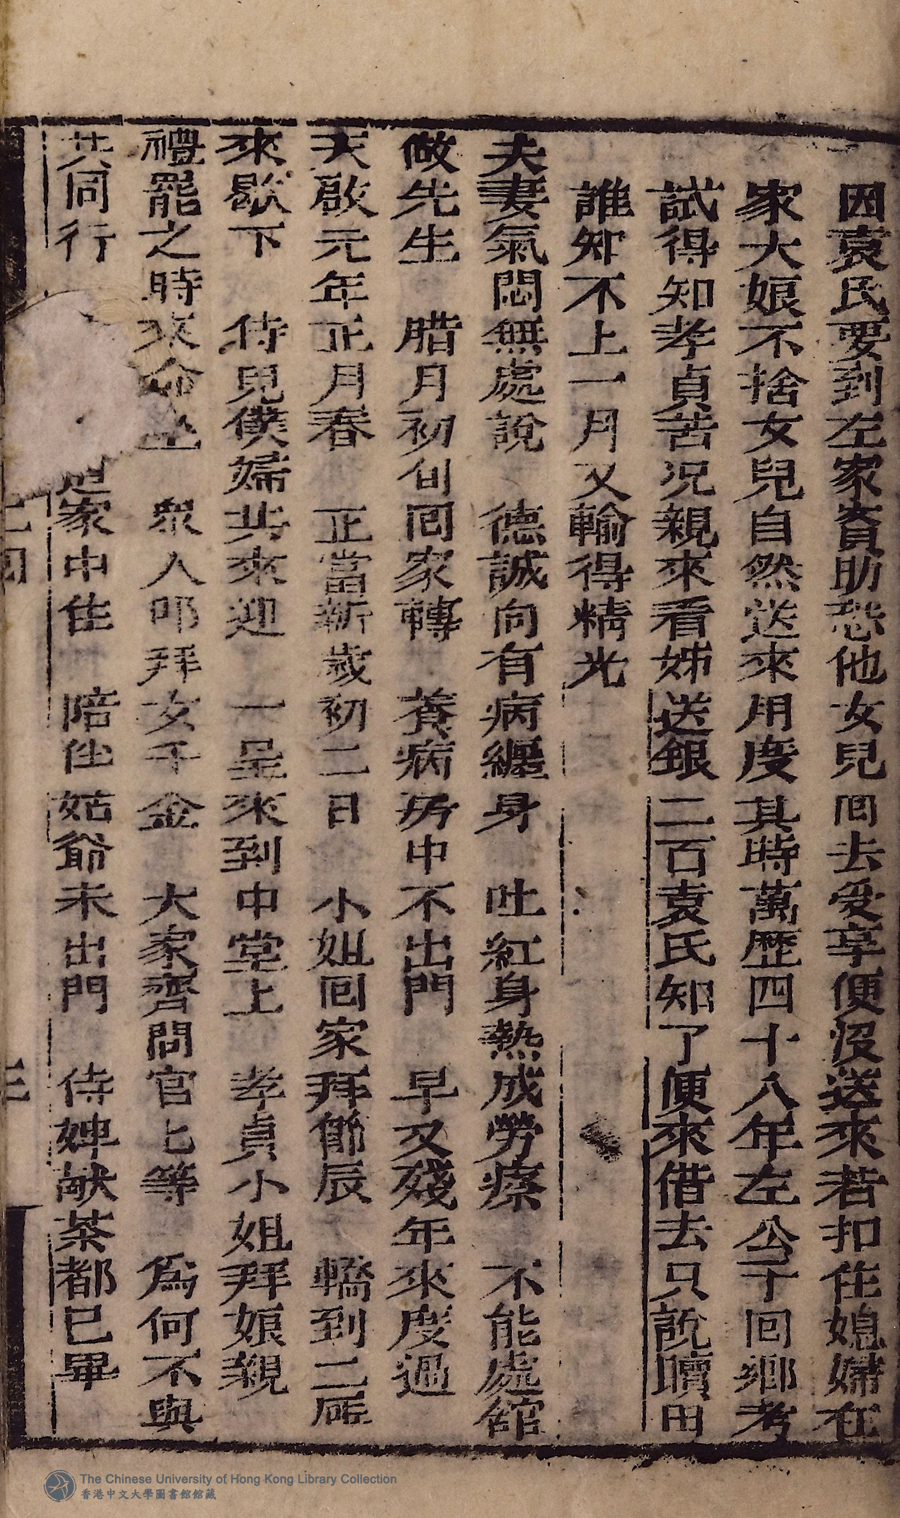 因袁氏要到左家資助恐他女兒回去受享便沒送來若扣住媳婦在
家大娘不捨女兒自然送來用度其時萬歷四十八年左公子回鄉考
試得知孝貞苦况親來看姊送銀二百袁氏知了便來借去只說贖田
誰知不上一月又輸得精光
夫妻氣悶無處說　德誠向有病纏身　吐紅身熱成勞瘵　不能處舘
做先生　腊月初旬囘家轉　養病房中不出門　早又殘年來度過
天啟元年正月春　正當新歲初二日　小姐囘家拜節辰　轎到二厛
來歇下　侍兒僕婦共來迎　一呈來到中堂上　孝貞小姐拜娘親
禮罷之時來命坐　衆人叩拜女千金　大家齊問官七等　爲何不與
共同行　家中住　陪伴姑爺未出門　侍婢献茶都已畢
三
The Chinese University of Hong Kong Library Collection
香港中文大學圖書館館藏